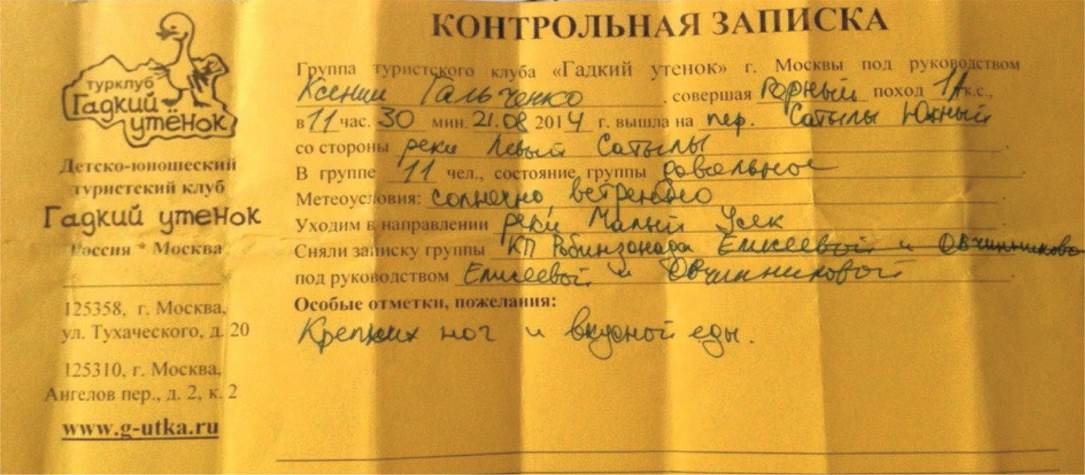 КОНТРОЛЬНАЯ ЗАПИСКА
турклуб
Гадкий
утёнок
Детско-юношеский
туристский клуб
Гадкий утенок
Россия * Москва
125358, г. Москва,
ул. Тухаческого, д. 20
125310, г. Москва,
Ангелов пер., д. 2, к. 2
www.g-utka.ru
Группа туристского клуба «Гадкий утенок» г. Москвы под руководством
Ксении Гальченко, совершая горный поход 1А к.с.,
в 11 час. 30 мин. 21.08 2014 г. вышла на пер. Сатылы Южный
со стороны реки Левый Сатылы.
В группе 11 чел., состояние группы довольное
Метеоусловия: солнечно, ветренно
Уходим в направлении реки Малый Усек
Сняли записку группы КП Робинзонада Елисеевой и Овчинниково
под руководством Елисеевой и Овчинниковой.
Особые отметки, пожелания:
Крепких ног и вкусной еды.